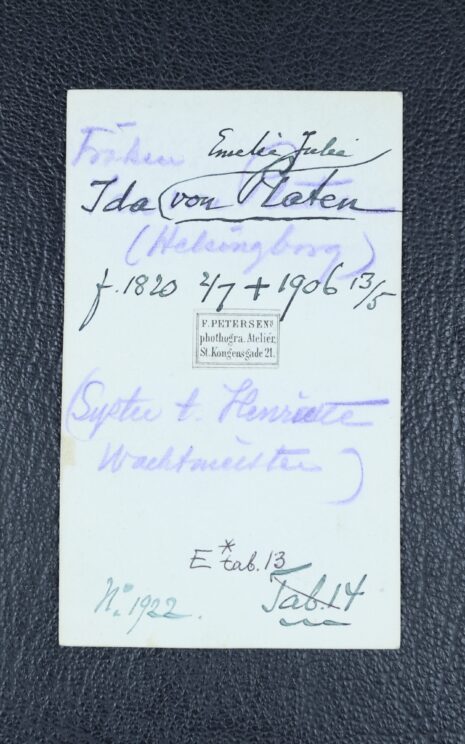 Emelie Julie
Fröken
Ida von Platen
(Helsingborg)
f. 1820 2/7 + 1906 13/5
F. PETERSENS
photogra. Atelier
St. Kongensgade 21.
(Syster t. Henriette
Wachtmeister)
E * tab. 13
Tab. 14
No. 1922.